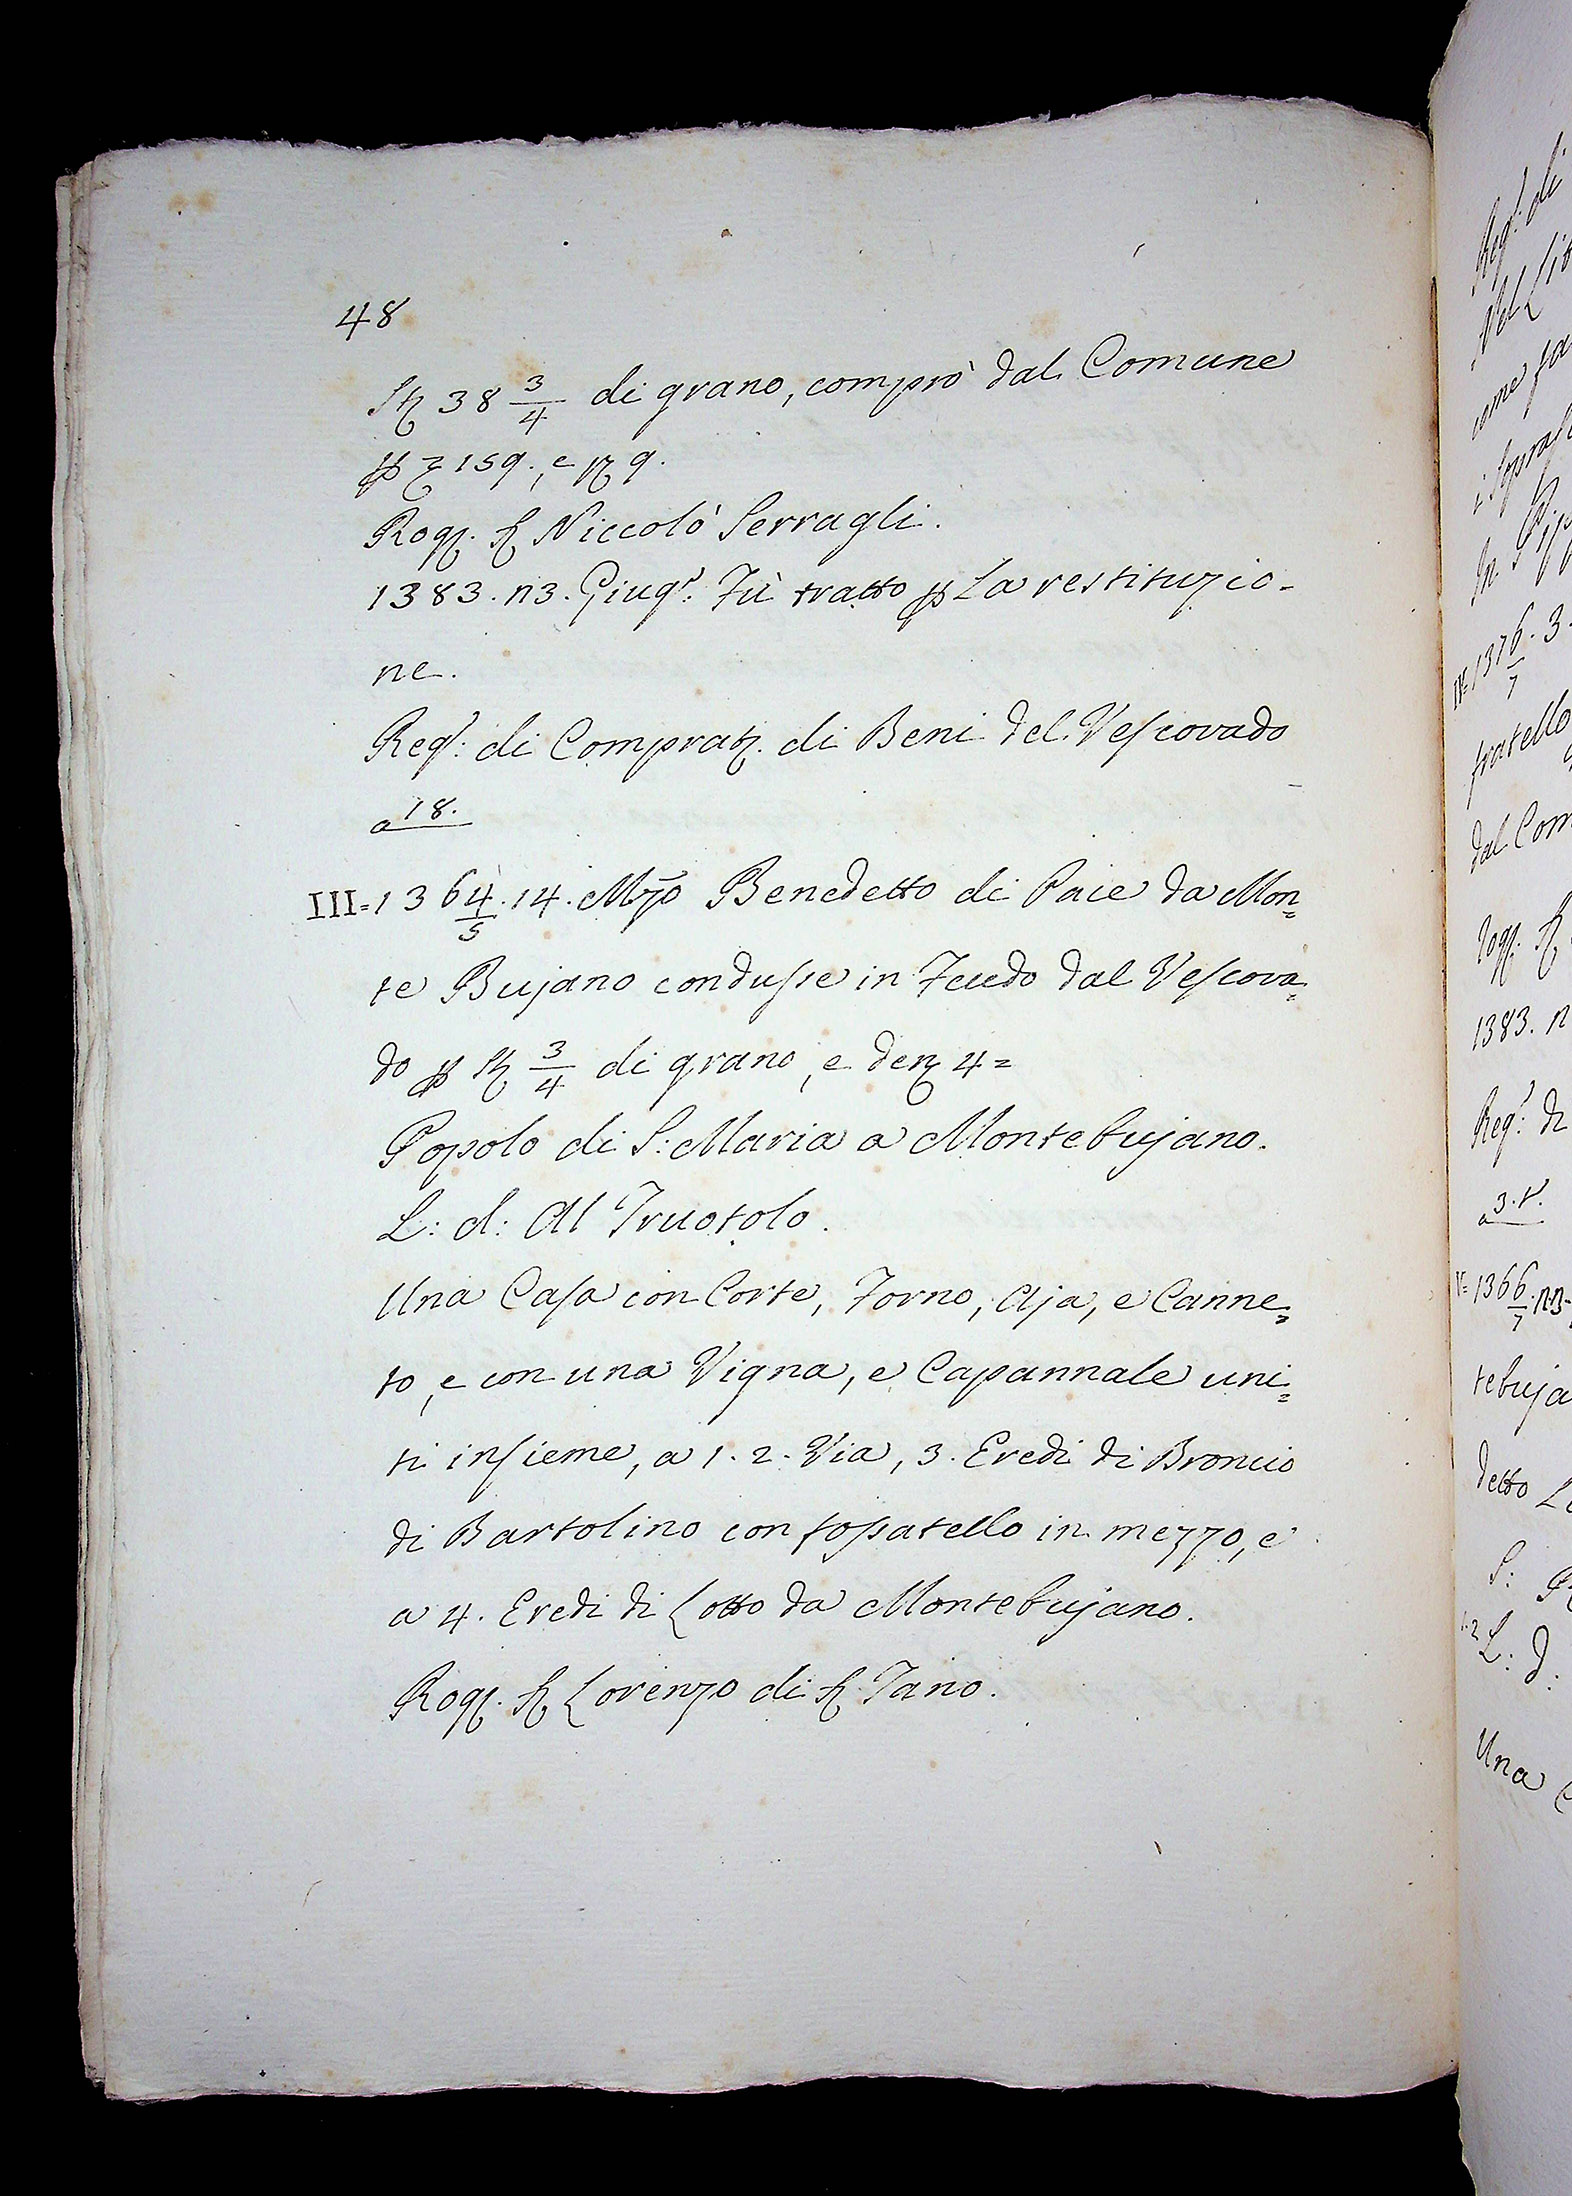 48
St 38 3/4 di grano, comprò dal Comune
159., e 9.
Rog. S. Niccolò Serragli.
1383. n3. Giug.º Fù tratto p La restituzio-
ne.
Reg.º: di Comprat. di Beni del Vescovado
a 18.
III=1364/5. 14. Mzo Benedetto di Pace da Mon=
te Bujano condusse in Feudo dal Vescova=
do p St 3/4 di grano, e den 4=
Popolo di S: Maria a Montebujano.
L: d: Al Truotolo.
Una Casa con Corte, Forno, Aja, e Canne=
to, e con una Vigna, e Capannale uni=
ti insieme, a 1. 2. Via, 3. Eredi di Broncio
di Bartolino con fossatello in mezzo, e
a 4. Eredi di Lotto da Montebujano.
Rog. S. Lorenzo di S. Tano.
Reg.º: di
Nel
come
i
In
IV=1376/7. 3.
fratello
dal Com
Rog. S.
1383. n
Reg.º: di
a 3.
V=1366/7.
tebuja
detto
S:
1.2 L: d:
Una